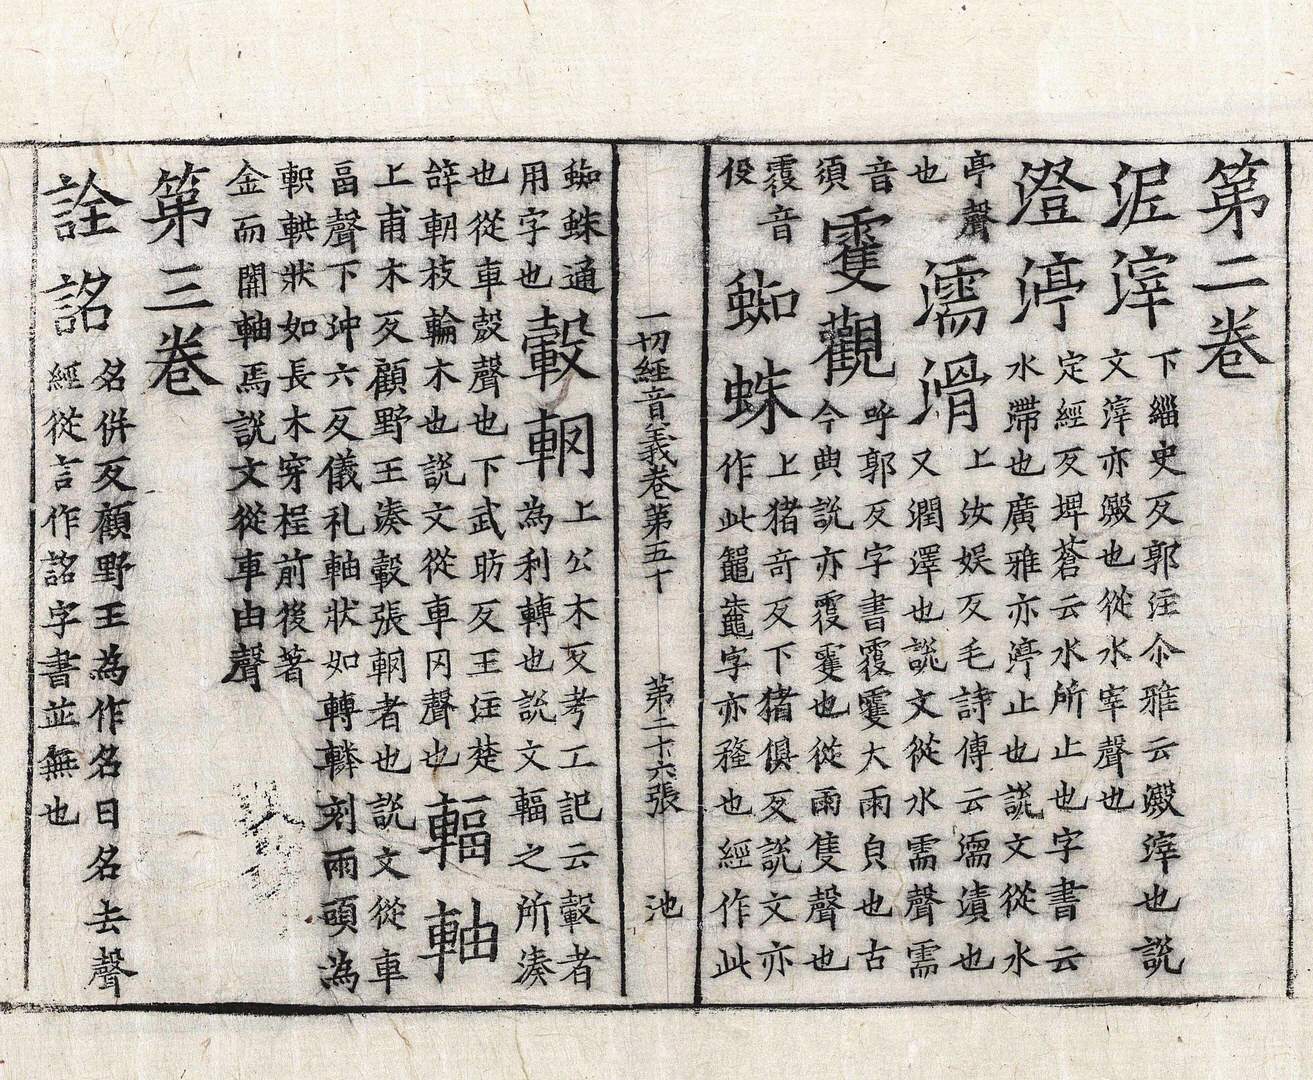 第二卷
泥滓
下緇史反郭注尒雅云澱滓也說
文滓亦澱也從水宰聲也
澄渟
定經反埤蒼云水所止也字書云
水滯也廣雅亦渟止也說文從水
亭聲
濡滑
上汝娛反毛詩傳云濡漬也
也
又潤澤也說文從水需聲需
音須
霍觀
呼郭反字書霍大雨皃也古
今典說亦霍也從雨隻聲也
音
役
蜘蛛
上猪奇反下猪俱反說文亦
作此鼅鼄字亦蝥也經作此
蜘蛛通
用字也
轂輞
上公木反考工記云轂者
為利轉也說文輻之所湊
也從車㱿聲也下武昉反王注楚
辝輞枝輪木也說文從車罔聲也
輻軸
上甫木反顧野王湊轂張輞者也說文從車
畐聲下沖六反儀礼軸狀如轉轔刻兩頭為
軹輁狀如長木穿桯前後著
金而關軸焉說文從車由聲
第三卷
詮詺
名併反顧野王為作名曰名去聲
經從言作詺字書並無也
一切經音義卷第五十 第二十六張 池